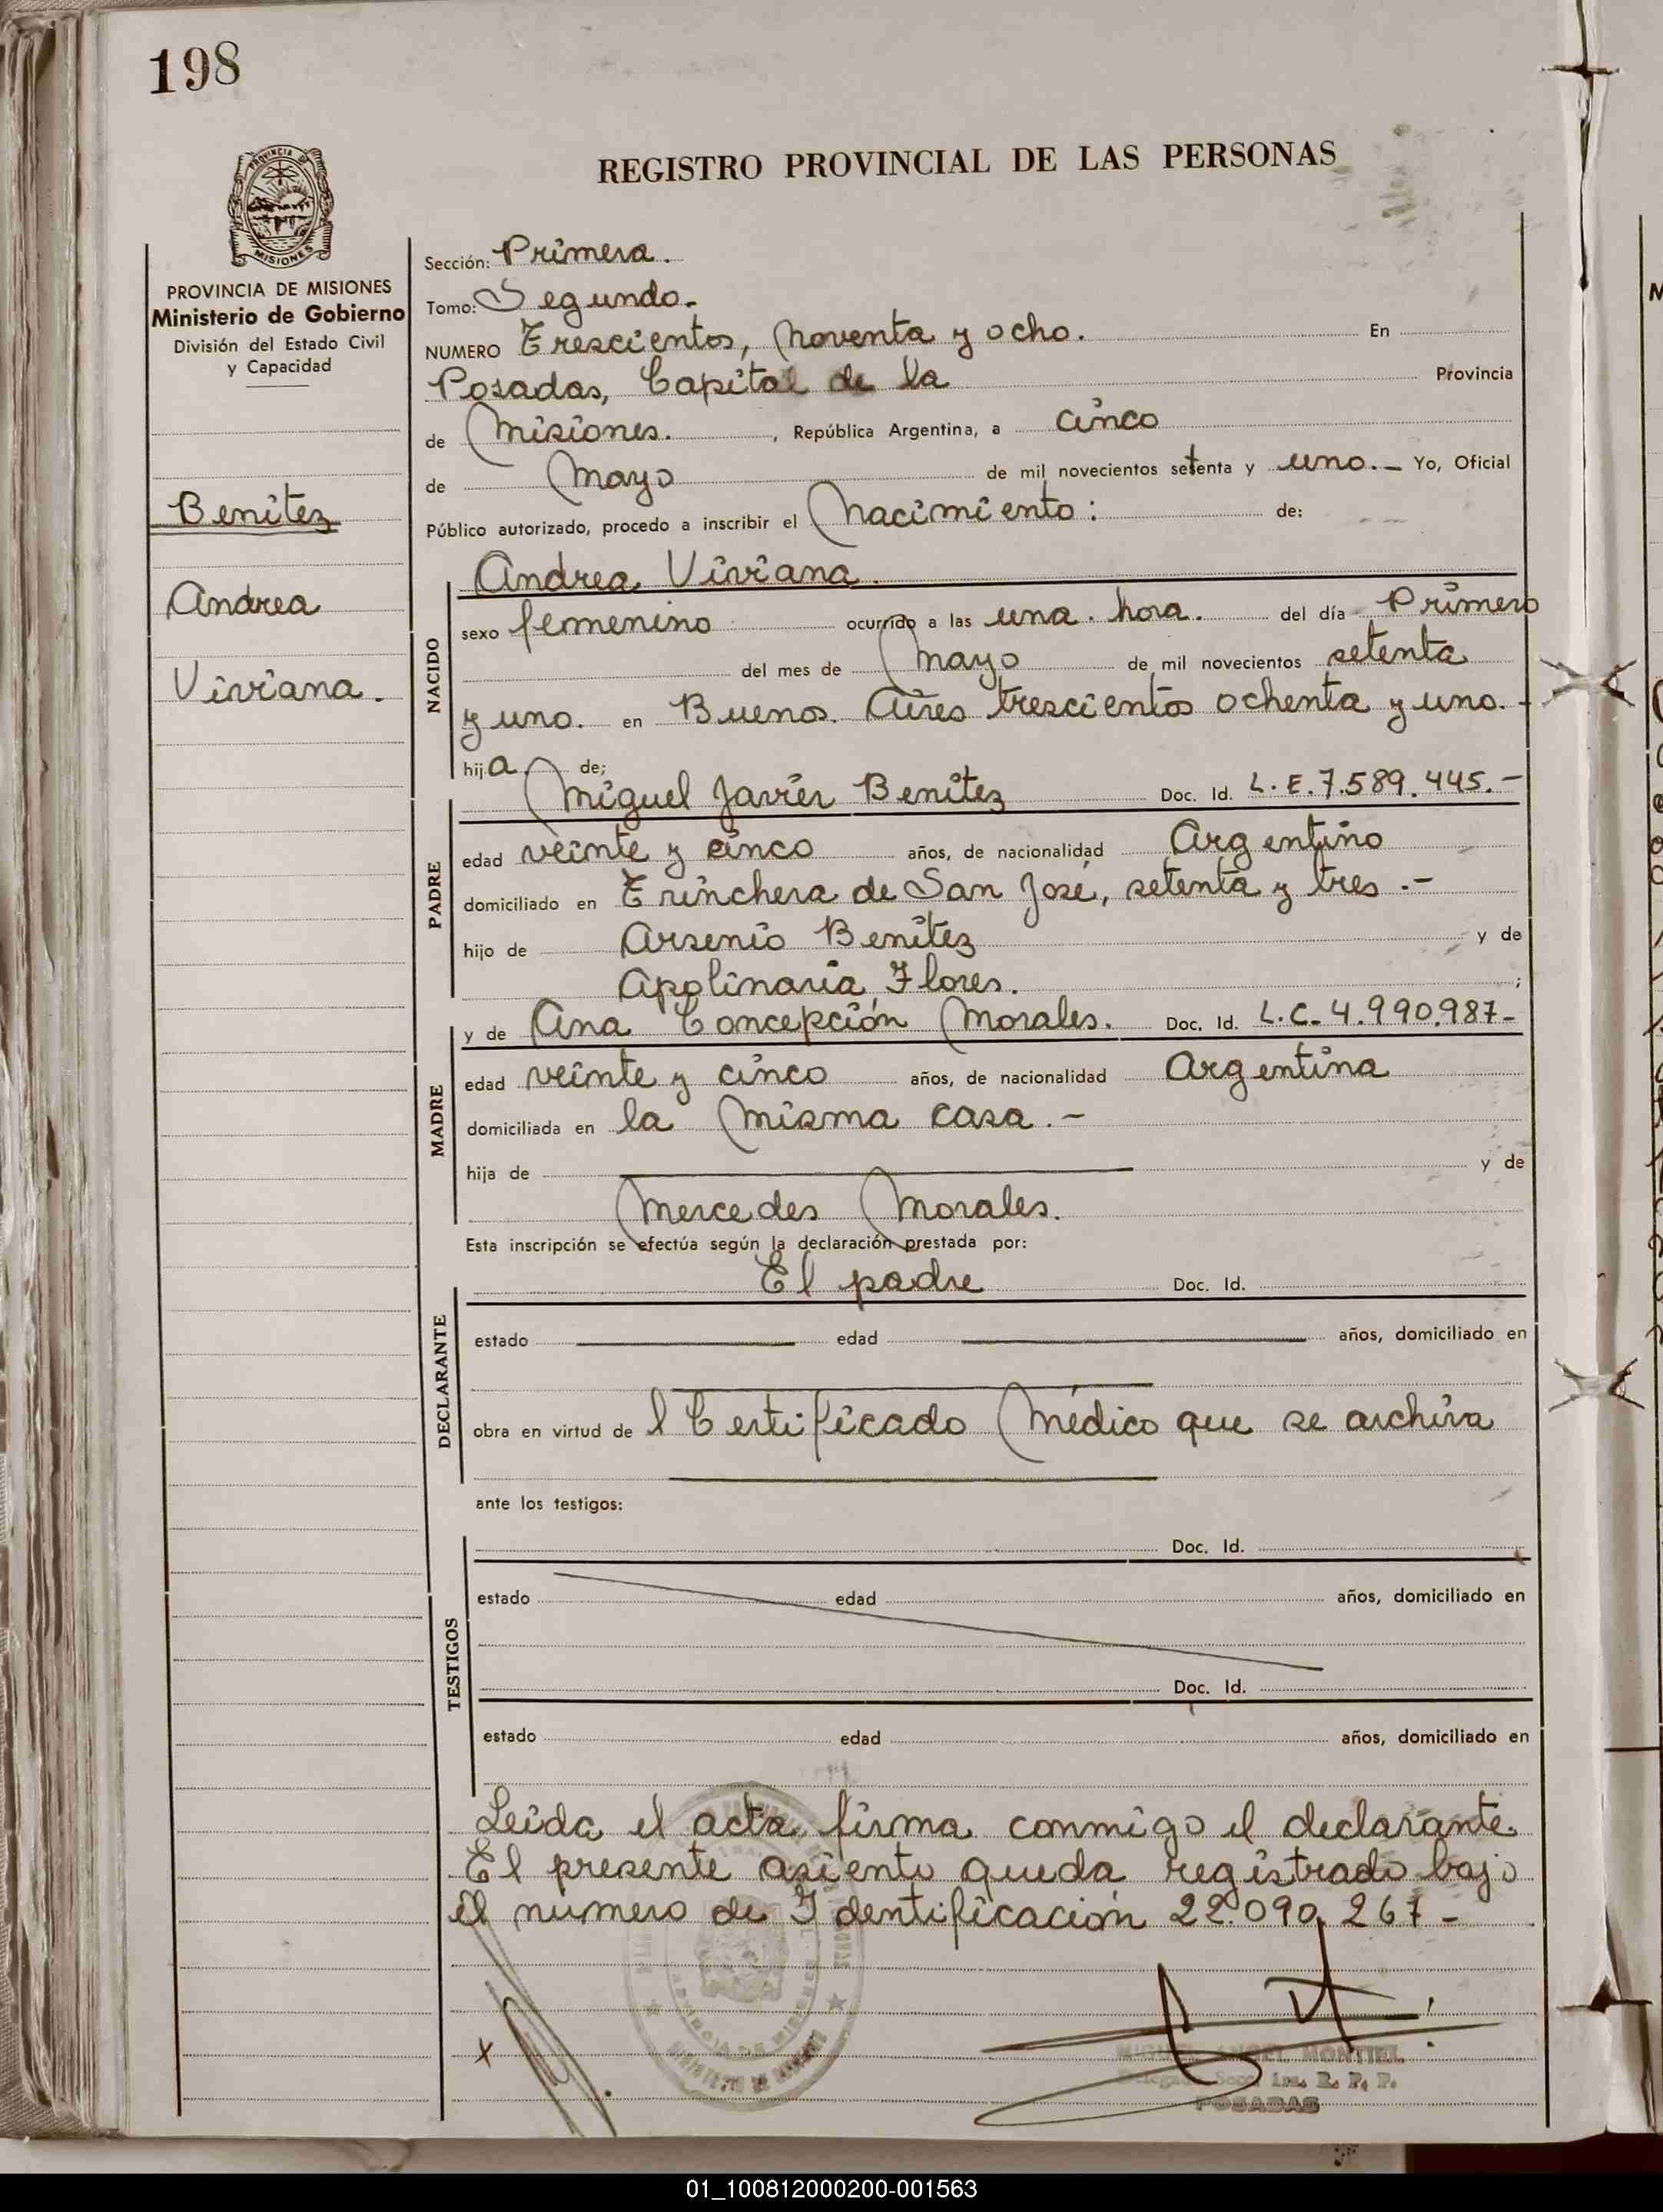 198
REGISTRO PROVINCIAL DE LAS PERSONAS
PROVINCIA DE MISIONES
PROVINCIA DE MISIONES
Ministerio de Gobierno
División del Estado Civil
y Capacidad
Benitez
Andrea
Viviana.
Sección: Primera.
Tomo: Segundo.
NUMERO Trescientos, Noventa y ocho. En
Posadas, Capital de la Provincia
de Misiones. , República Argentina, a cinco
de Mayo de mil novecientos setenta y uno.- Yo, Oficial
Público autorizado, procedo a inscribir el Nacimiento: de:
Andrea Viviana.
NACIDO
sexo femenino ocurrido a las una. hora. del día Primero
del mes de Mayo de mil novecientos setenta
y uno. en Buenos Aires trescientos ochenta y uno.-
hija de;
PADRE
Miguel Javier Benitez Doc. Id. L.E.7.589.445.-
edad veinte y cinco años, de nacionalidad Argentino
domiciliado en Trinchera de San José, setenta y tres.-
hijo de Arsenio Benitez y de
Apolinaria Flores. ;
MADRE
y de Ana Concepción Morales. Doc. Id. L.C.4.990.987-
edad veinte y cinco años, de nacionalidad Argentina
domiciliada en la Misma casa.-
hija de y de
Mercedes Morales.
Esta inscripción se efectúa según la declaración prestada por:
DECLARANTE
El padre Doc. Id.
estado edad años, domiciliado en
obra en virtud de l Certificado Médico que se archiva
ante los testigos:
TESTIGOS
Doc. Id.
estado edad años, domiciliado en
Doc. Id.
estado edad años, domiciliado en
Leida el acta firma conmigo el declarante.
El presente asiento queda registrado bajo
el número de Identificación 22.090.267-
MIGUEL ANGEL MONTIEL
Delegado Secc. 1ra. R. P. P.
POSADAS
01_100812000200-001563